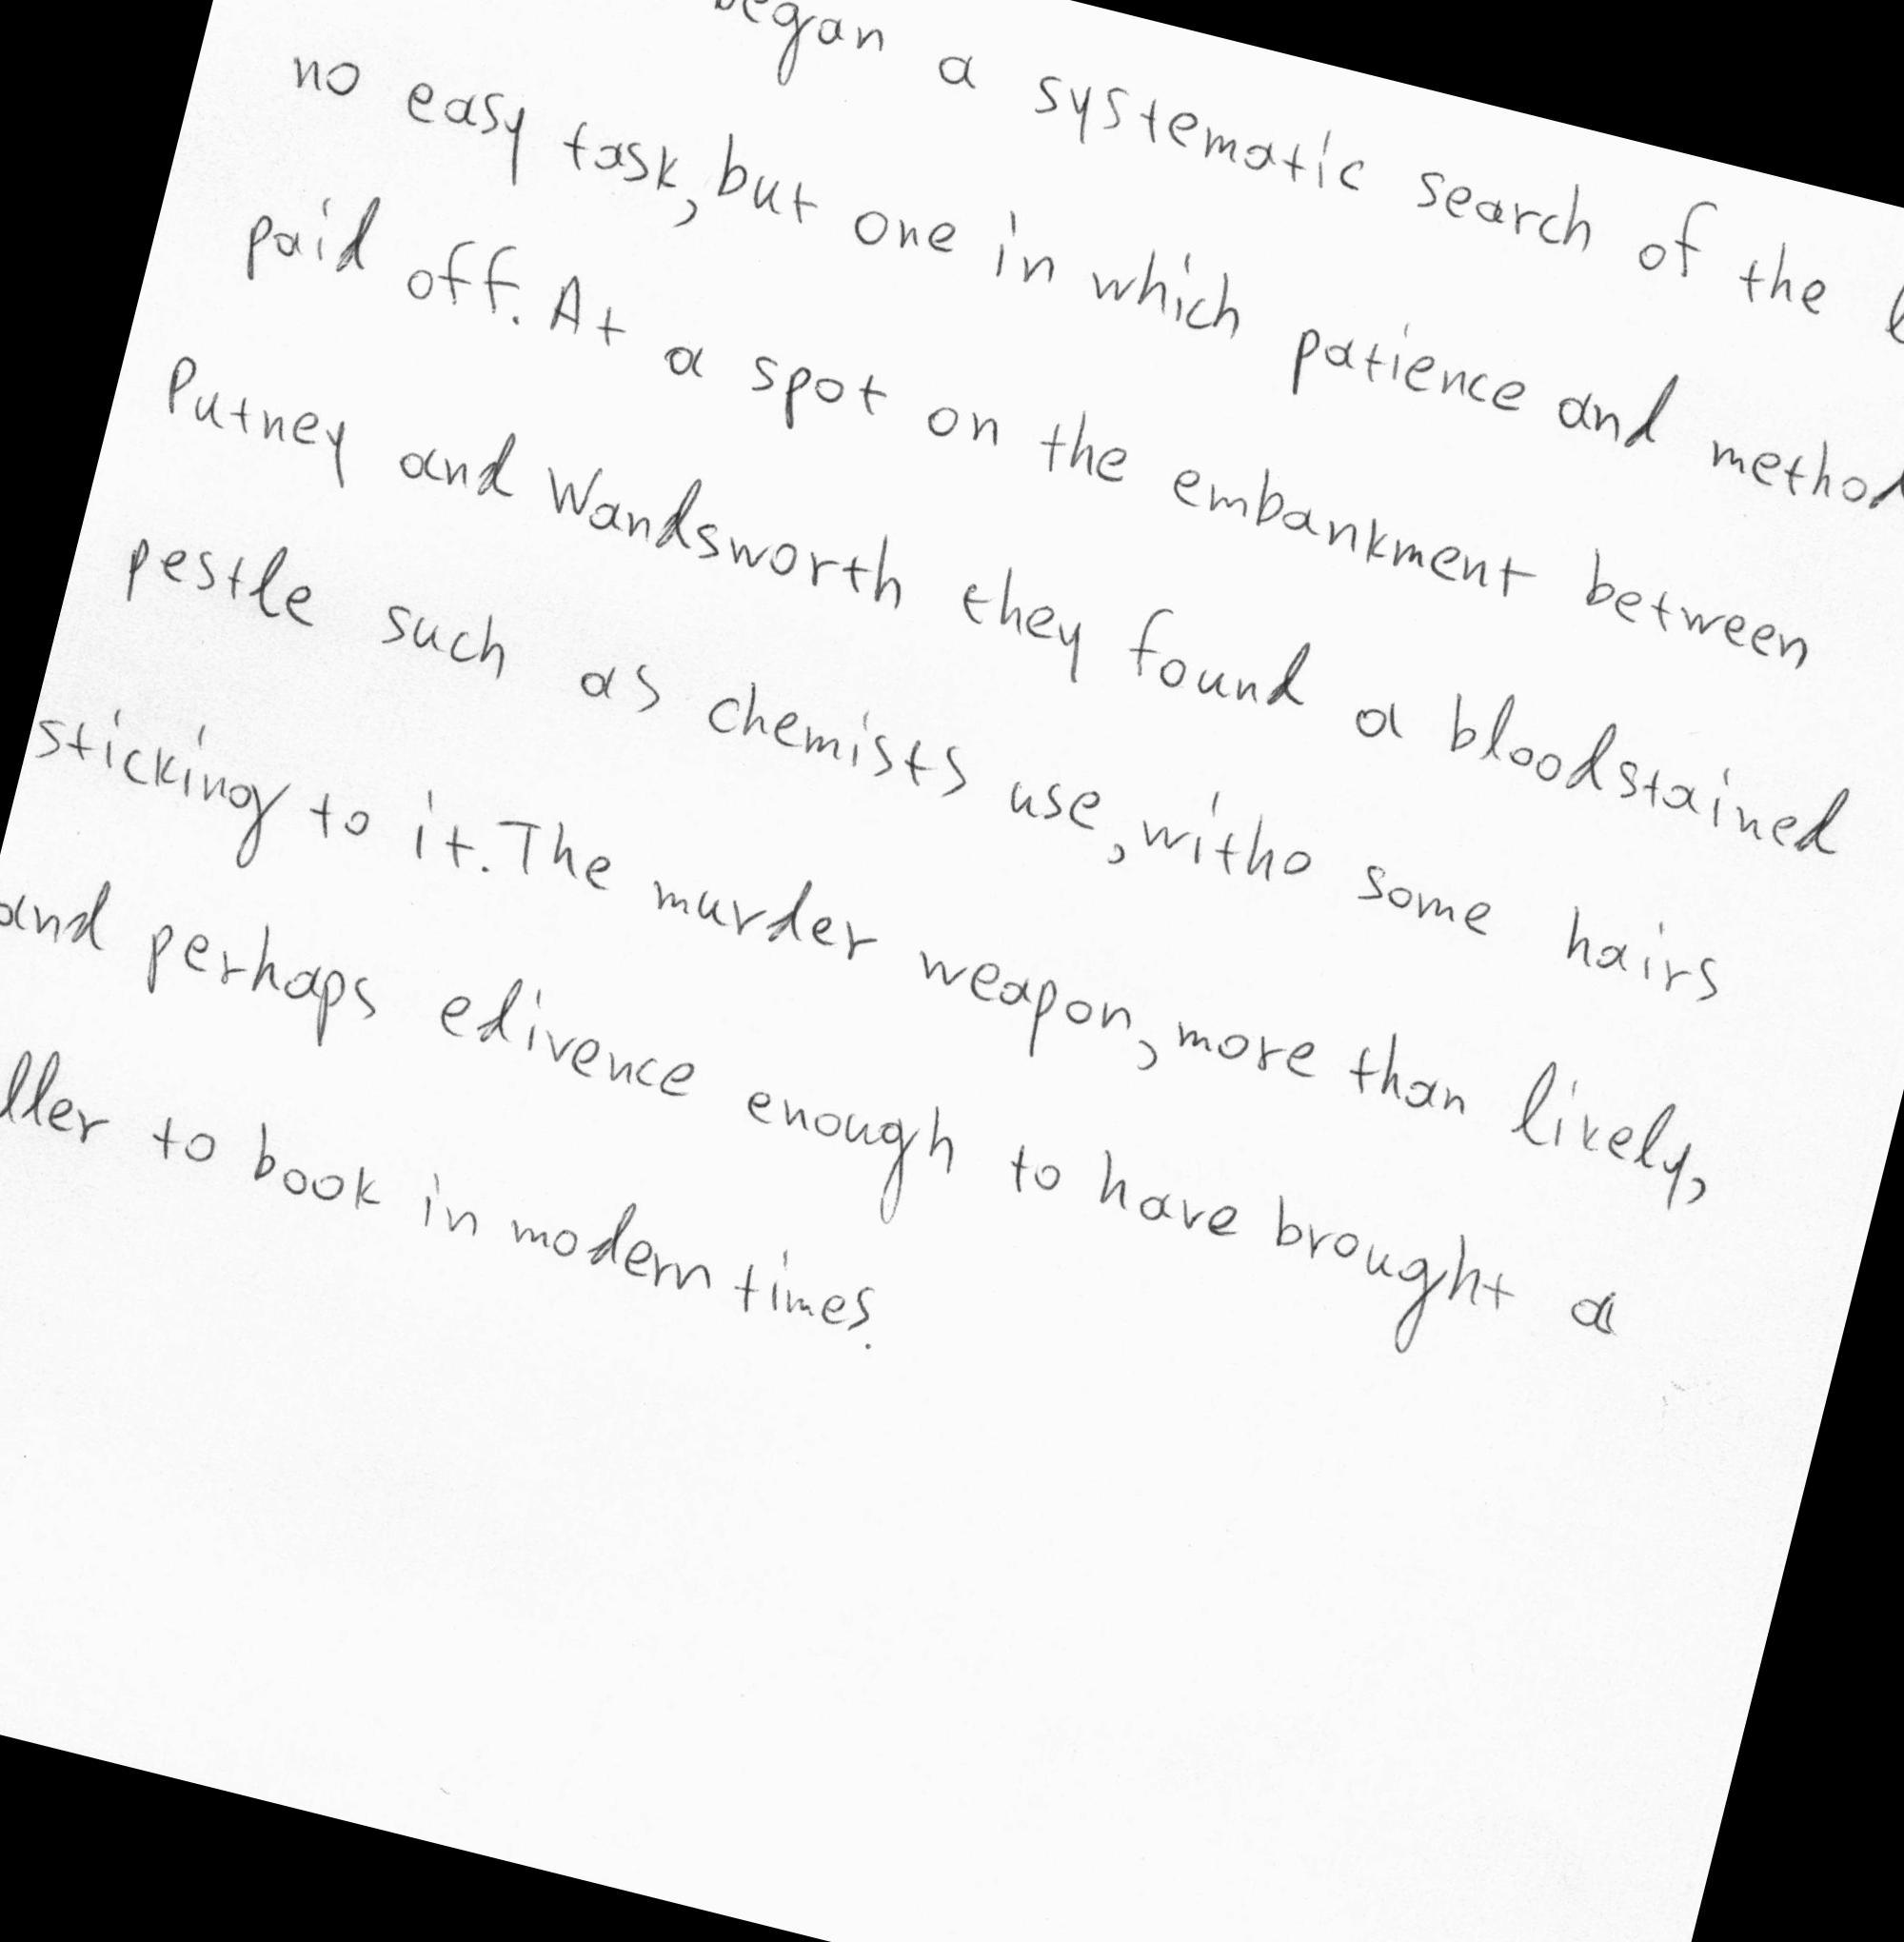 began a systematic search of the
no easy task, but one in which patience and method
paid off. At a spot on the embankment between
Putney and Wandsworth they found a bloodstained
pestle such as chemists use, witho some hairs
sticking to it. The murder weapon, more than likely,
and perhaps edivence enough to have brought a
ller to book in modern times.